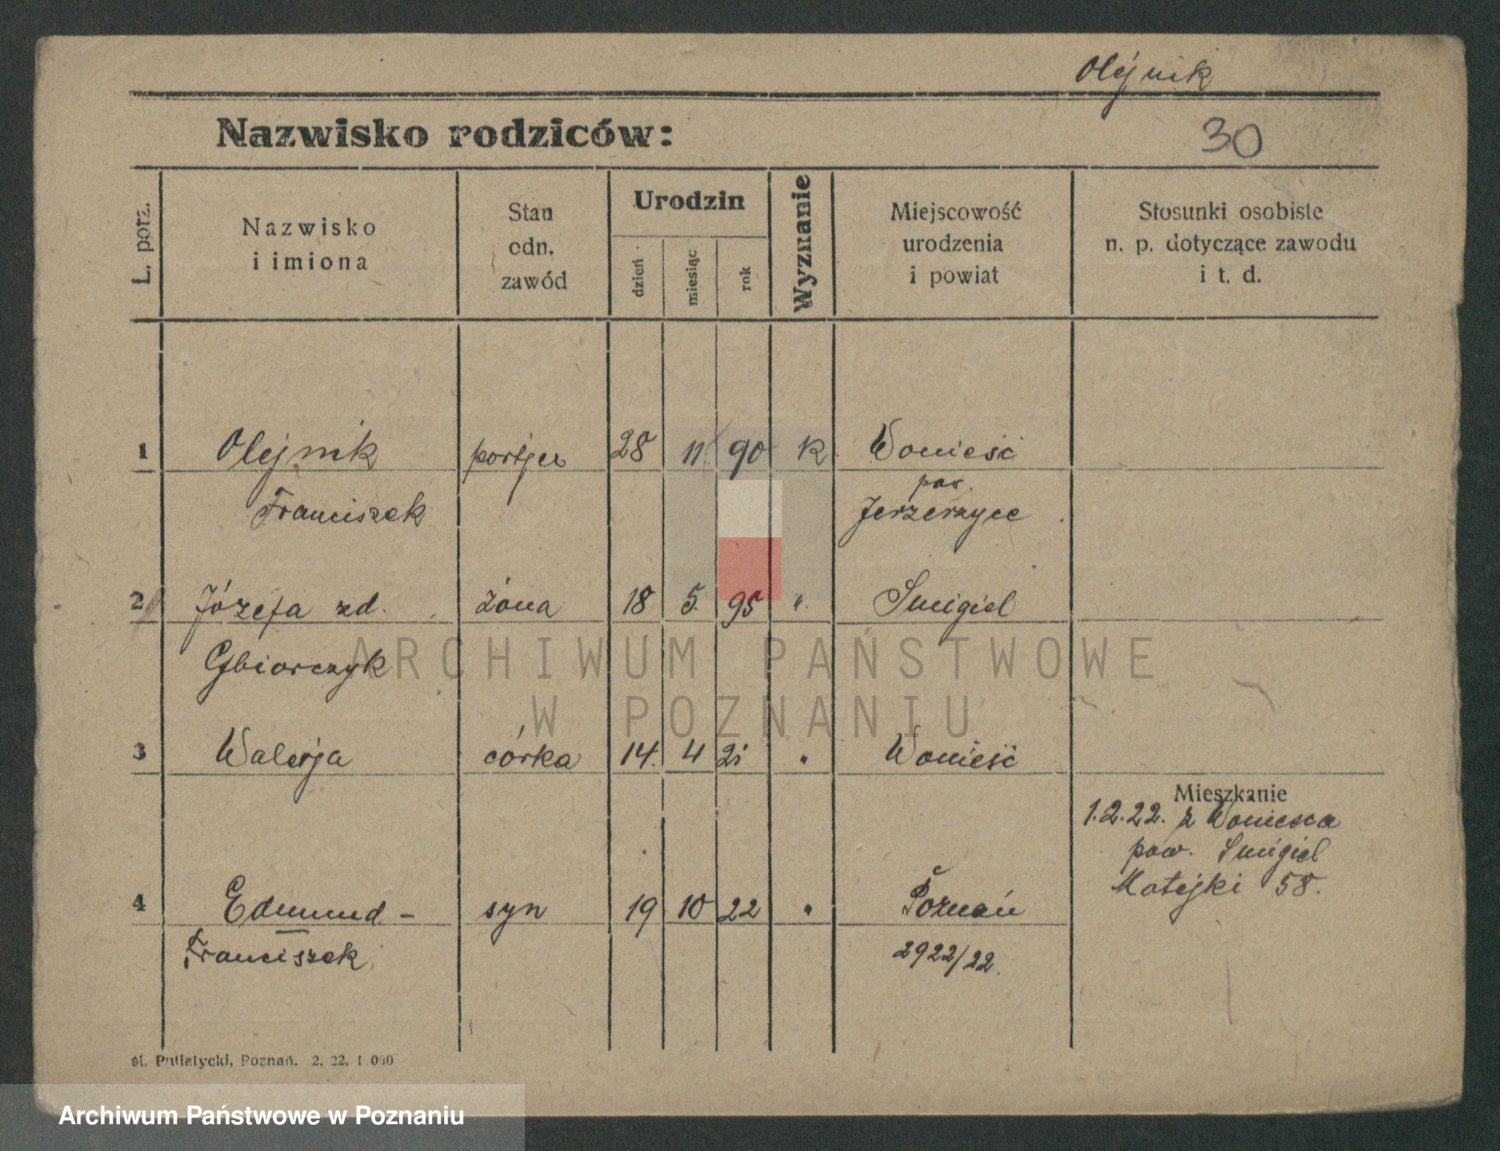 Olejnik
Nazwisko rodziców:
30
L. porz.
Nazwisko
i imiona
Stan
odn.
zawód
Urodzin
dzień
miesiąc
rok
Wyznanie
Miejscowość
urodzenia
i powiat
Stosunki osobiste
n. p. dotyczące zawodu
i t. d.
1 Olejnik portjer 28 11 90 K. Wonieść
Franciszek pow. Jerzerzyce
2 Józefa zd. żona 18 5. 95 ". Śmigiel
Gbiorczyk
ARCHIWUM PAŃSTWOWE
W POZNANIU
3 Walerja córka 14. 4 21 " Wonieść
Mieszkanie
1.2.22. z Woniescia
pow. Smigiel
Matejki 58.
4 Edmund - syn 19 10 22 " Poznań
Franciszek 2922/22.
M. Putiatycki, Poznań. 2. 22. 1 000
Archiwum Państwowe w Poznaniu